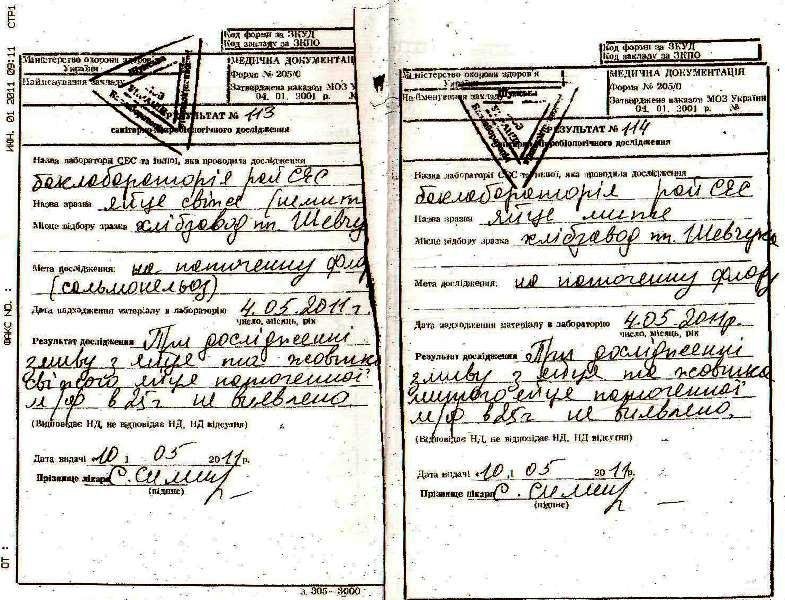 СТР1
ИЮН. 01 2011 09:11
ФАКС NO. :
ОТ :
Код форми за ЗКУД
Код закладу за ЗКПО
Міністерство охорони здоров'я
України
Найменування закладу
МЕДИЧНА ДОКУМЕНТАЦІЯ
Форма № 205/0
Затверджена наказом МОЗ У
04. 01. 2001 р. №
РЕЗУЛЬТАТ № 113
санітарно-мікробіологічного дослідження
Назва лабораторії СЕС та іншої, яка проводила дослідження
баклабораторія рай СЕС
Назва зразка яйце свіже
Місце відбору зразка хлібзавод пп. Шевчу
Мета дослідження: на патогенну фло
(сальмонельоз)
Дата надходження матеріалу в лабораторію 4.05.2011 г
число, місяць, рік
Результат дослідження При дослідженні
змиву з яйце та жовтка
свіжого яйце патогенної
м/ф в 25 г не виявлено
(Відповідає НД, не відповідає НД, НД відсутня)
Дата видачі «10» 05 2011 р.
Прізвище лікаря С.
(підпис)
з. 305- 3000
Код форми за ЗКУД
Код закладу за ЗКПО
Міністерство охорони здоров'я
Найменування закладу
МЕДИЧНА ДОКУМЕНТАЦІЯ
Форма № 205/0
Затверджена наказом МОЗ України
04. 01. 2001 р. №
РЕЗУЛЬТАТ № 114
мікробіологічного дослідження
Назва лабораторії СЕС та іншої, яка проводила дослідження
баклабораторія рай СЕС
Назва зразка яйце мите
Місце відбору зразка хлібзавод пп. Шевчука
Мета дослідження: на патогенну флору
Дата надходження матеріалу в лабораторію 4.05.2011р.
число, місяць, рік
Результат дослідження При дослідженні
змиву з яйце та жовтка
митого яйце патогенної
м/ф в 25 г не виявлено.
(Відповідає НД, не відповідає НД, НД відсутня)
Дата видачі «10» 05 2011р.
Прізвище лікаря С.
(підпис)